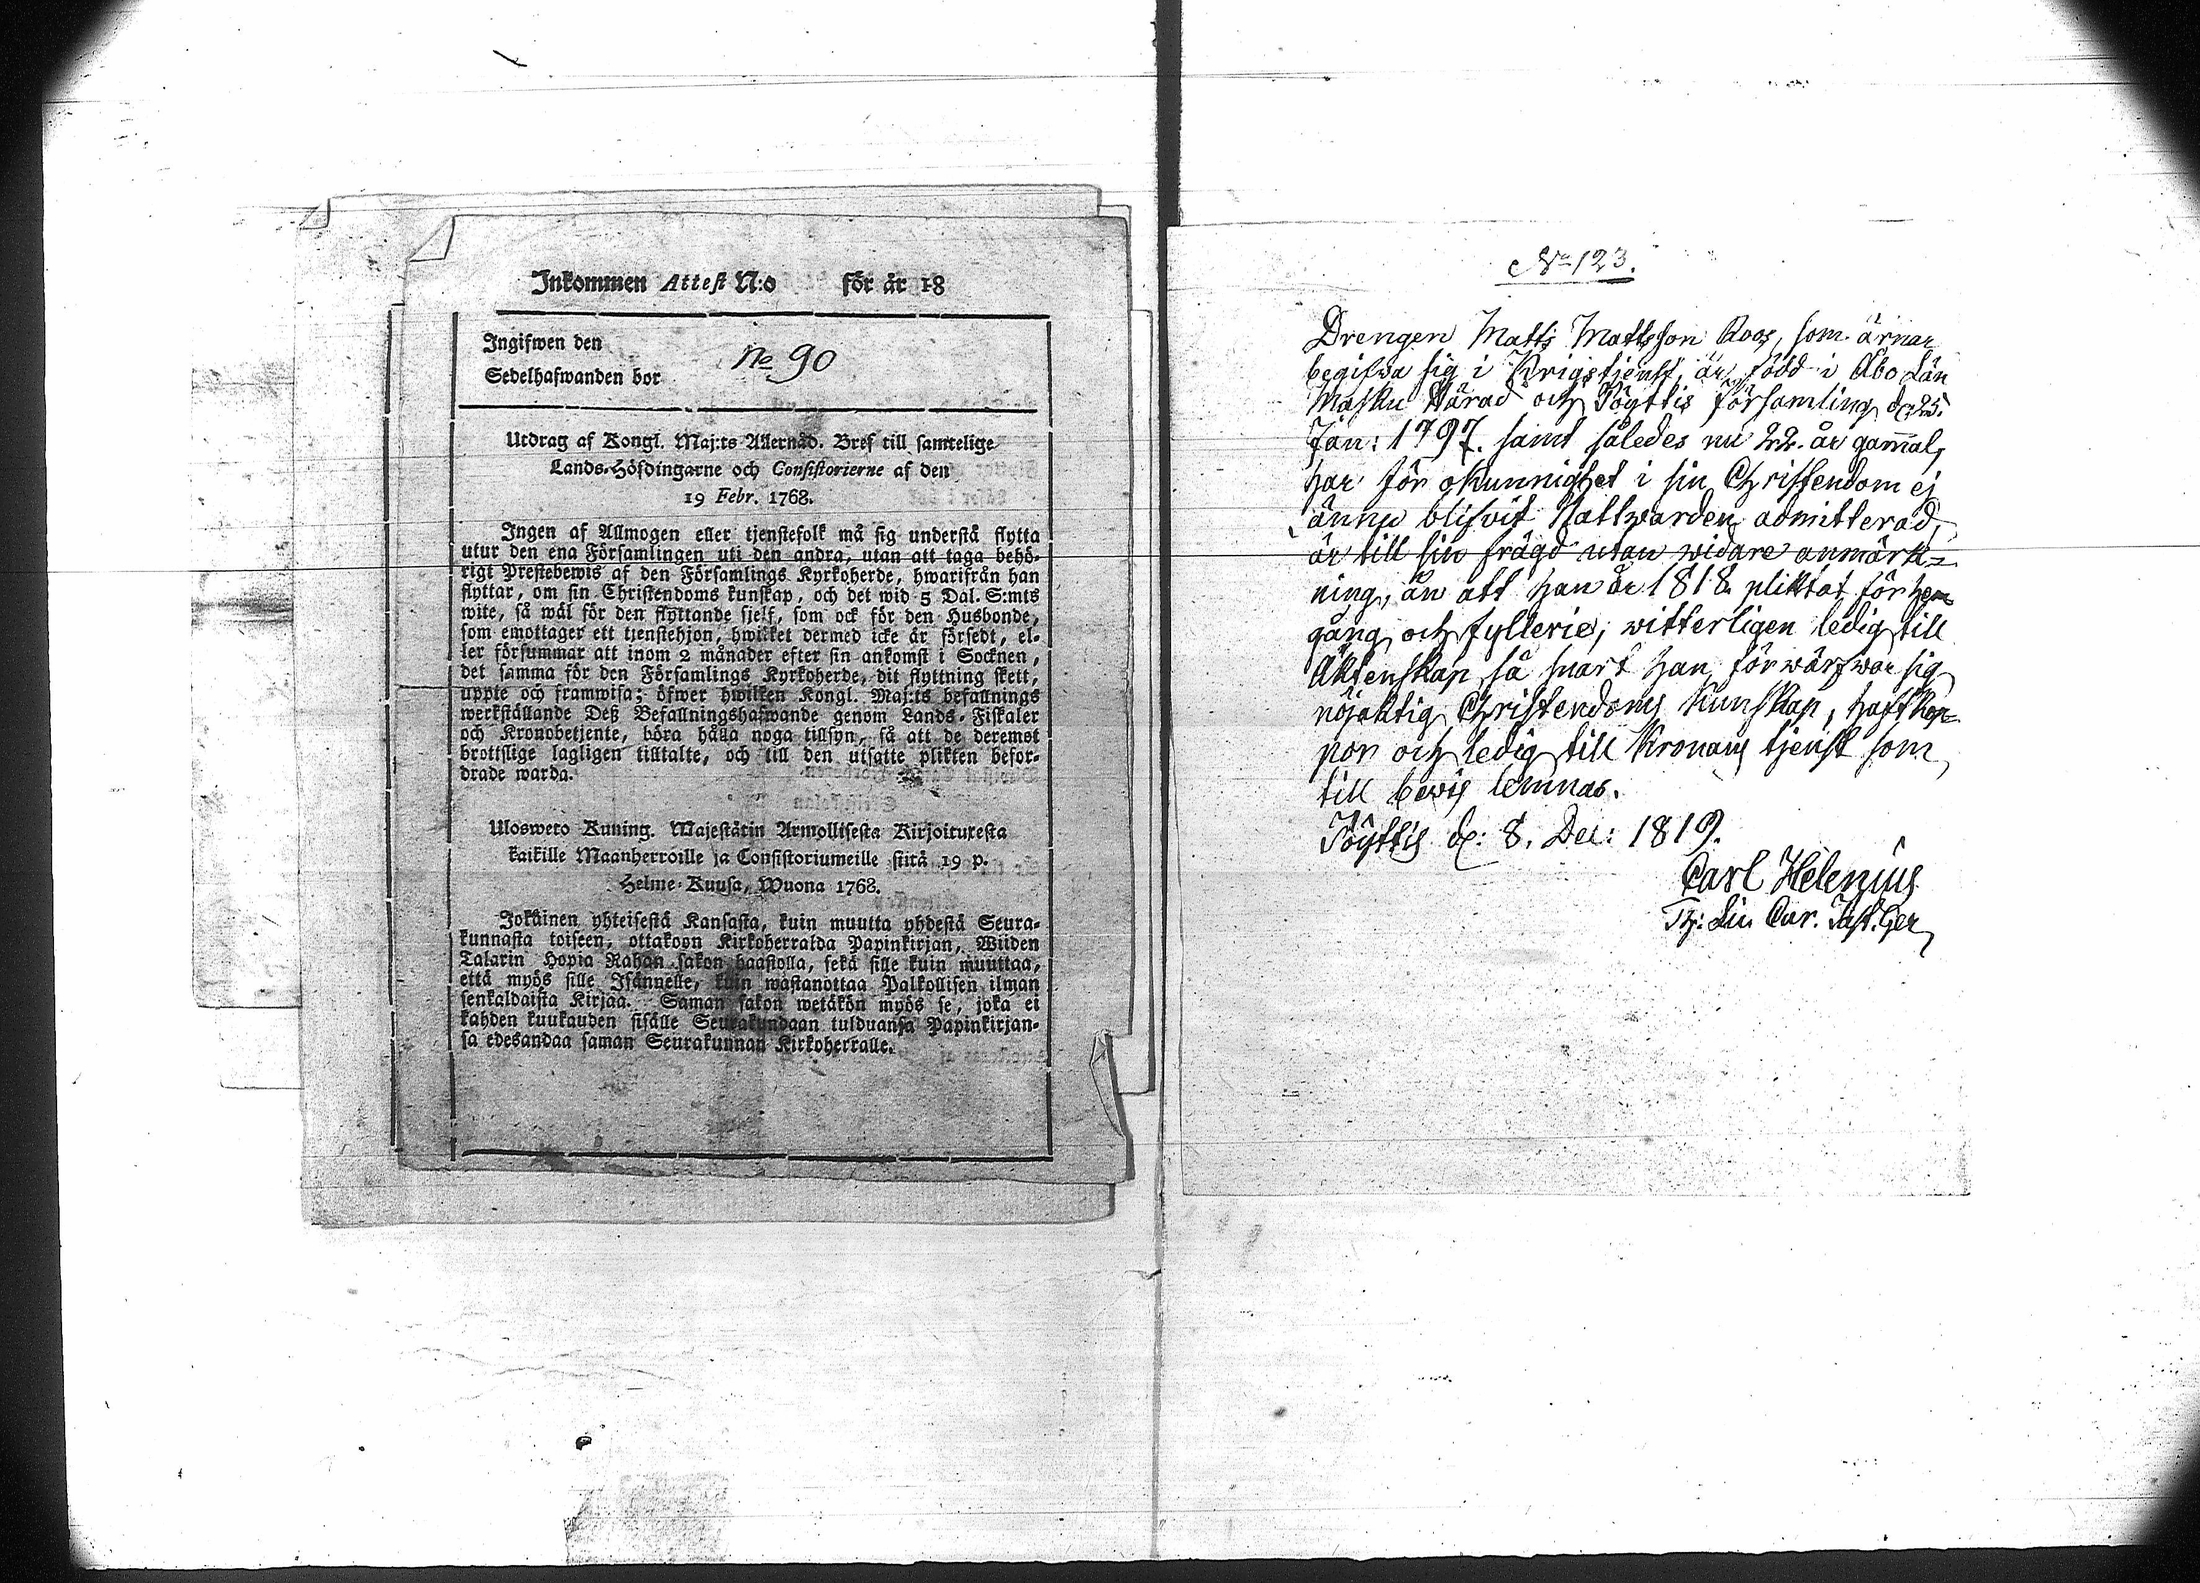 Inkommen Attest N:o för år 18
Ingifwen den
No 90
Sedelhafwanden bor
Utdrag af Kongl. Maj:ts Allernåd. Bref till samtelige
Lands-Höfdingarne och Consistorierne af den
19 Febr. 1768.
Ingen af Allmogen eller tjenstefolk må sig understå flytta
utur den ena Församlingen uti den andra, utan att taga behö-
rigt Prestebewis af den Församlings Kyrkoherde, hwarifrån han
flyttar, om sin Christendoms kunskap, och det wid 5 Dal. S:mts
wite, så wäl för den flyttande sjelf, som ock för den Husbonde,
som emottager ett tjenstehjon, hwilket dermed icke är försedt, el-
ler försummar att inom 2 månader efter sin ankomst i Socknen,
det samma för den Församlings Kyrkoherde, dit flyttning skett,
uppte och framwisa; öfwer hwilken Kongl. Maj:ts befallnings
werkställande Deß Befallningshafwande genom Lands-Fiskaler
och Kronobetjente, böra hålla noga tillsyn, så att de deremot
brottslige lagligen tilltalte, och till den utsatte plikten befor-
drade warda.
Ulosweto Kuning. Majestätin Armollisesta Kirjoituxesta
kaikille Maanherroille ja Consistoriumeille siitä 19 p.
Helme-Kuusa, Wuona 1768.
Jokainen yhteisestä Kansasta, kuin muutta yhdestä Seura-
kunnasta toiseen, ottakoon Kirkoherralda Papinkirjan, Wiiden
Talarin Hopia Rahan sakon haastolla, sekä sille kuin muuttaa,
että myös sille Isännelle, kuin wastanottaa Palkollisen ilman
senkaldaista Kirjaa. Saman sakon wetäkön myös se, joka ei
kahden kuukauden sisälle Seurakundaan tulduansa Papinkirjan-
sa edesandaa saman Seurakunnan Kirkoherralle.
No 123.
Drengen Matts Mattsson Roos, som ärnar
begifva sig i Krigstjenst, är född i Åbo Län
Masku Härad och Pöyttis församling d. 25.
Jan: 1797. samt således nu 22. år gam̄al,
har för okunnighet i sin Christendom ej
ännu blifvit Nattwarden admitterad,
är till sin frägd utan widare anmärk=
ning, än att han år 1818 pliktat för hem
gång och fylleri, witterligen ledig till
Äktenskap så snart han förwärfwar sig
nöjaktig Christendoms Kunskap, haft Kop=
por och ledig till Kronans tjenst som
till bewis lemnas.
Pöyttis d: 8. Dec: 1819.
Carl Helenius